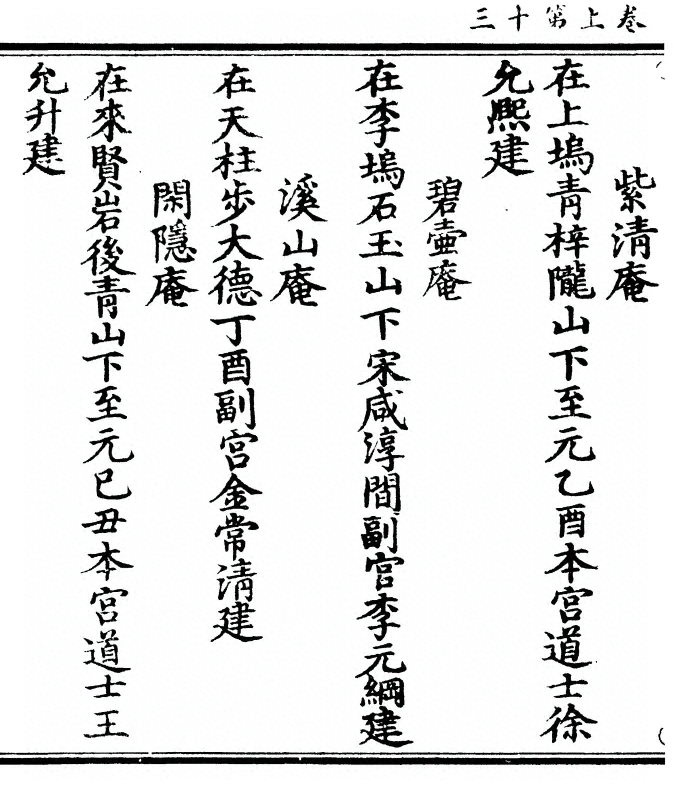 三十第上卷
紫清庵
在上塢青梓隴山下至元乙酉本宮道士徐
允熈建
碧壺庵
在李塢石玉山下宋咸淳間副宮李元綱建
溪山庵
在天柱步大德丁酉副宮金常清建
閑隱庵
在來賢岩後青山下至元已丑本宮道士王
允升建